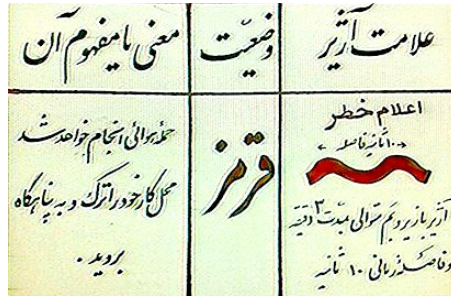 علامت آژیر
وضعیت
معنی یا مفهوم آن
اعلام خطر
۱۰ ثانیه فاصله
آژیر با زیر و بم متوالی بمدت ۳ دقیقه
و فاصله زمانی ۱۰ ثانیه
قرمز
حمله هوائی انجام خواهد شد
محل کار خود را ترک و به پناهگاه
بروید.